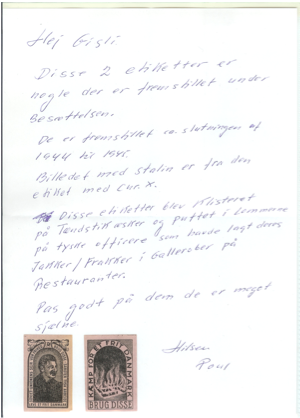 Hej Gisli
Disse 2 etiketter er
nogle der er fremstillet under
Besættelsen.
De er fremstillet ca. slutningen af
1944 til 1945.
Billedet med Stalin er fra den
etiket med Cur. X.
Disse etiketter blev klisteret
på Tændstikæsker og puttet i lommerne
på tyske officerer som havde lagt deres
Jakker/Frakker i Gallerober på
Restauranter.
Pas godt på dem de er meget
sjældne
Hilsen
Poul
KÆMP FOR ET FRIT DANMARK
BRUG DISSE